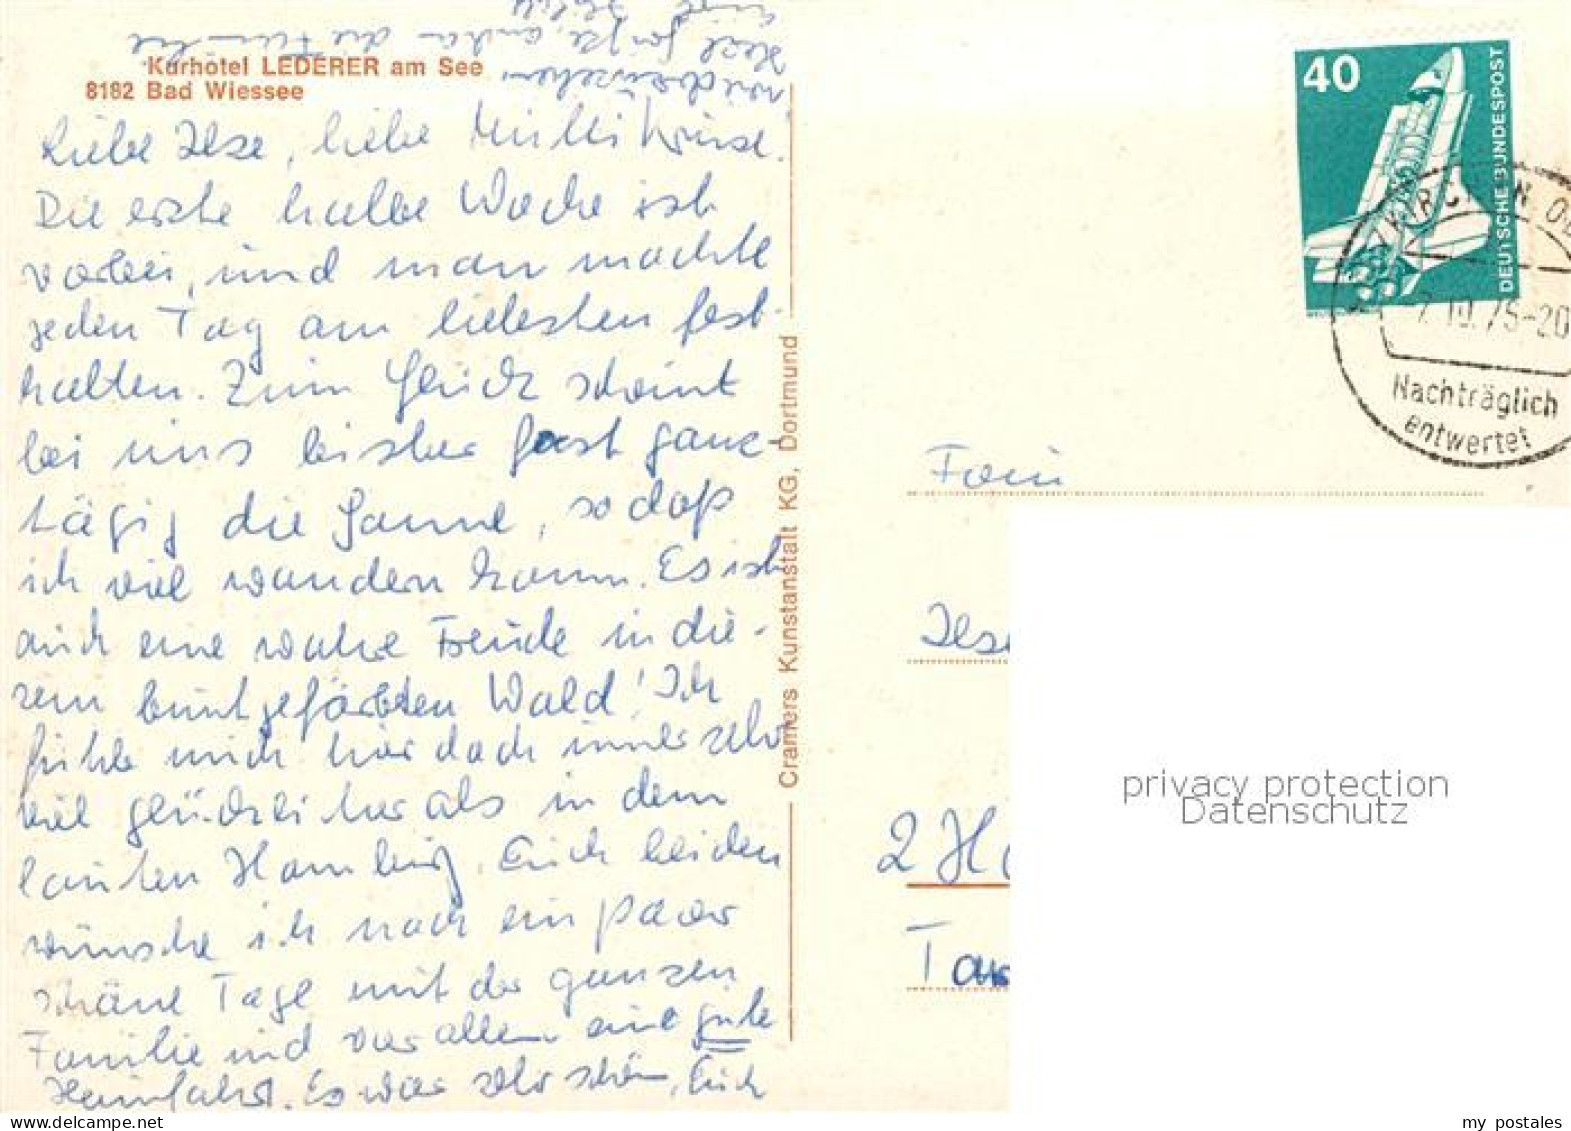 Kurhotel LEDERER am See
8182 Bad Wiessee
Liebe Ilse, liebe Mutti Kruse!
Die erste halbe Woche ist
vorbei, und man möchte
jeden Tag am liebsten fest-
halten. Zum Glück scheint
bei uns bisher fast ganz-
tägig die Sonne, so daß
ich viel wandern kann. Es ist
auch eine wahre Freude in die-
sem buntgefärbten Wald! Ich
fühle mich hier doch immer sehr
viel glücklicher als in dem
lauten Hamburg. Euch beiden
wünsche ich noch ein paar
schöne Tage mit der ganzen
Familie und vor allem eine gute
Heimfahrt. Es war sehr schön, Euch
wiederzusehen.
Herzl. Grüße, auch an die Familie
Cramers Kunstanstalt KG, Dortmund
40
DEUTSCHE BUNDESPOST
10.75-20
Nachträglich
entwertet
Ilse
2 H
privacy protection
Datenschutz
my_postales
delcampe.net